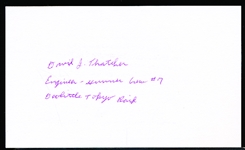 David J. Thatcher
Engineer - gunner Crew #7
Doolittle Tokyo Raid